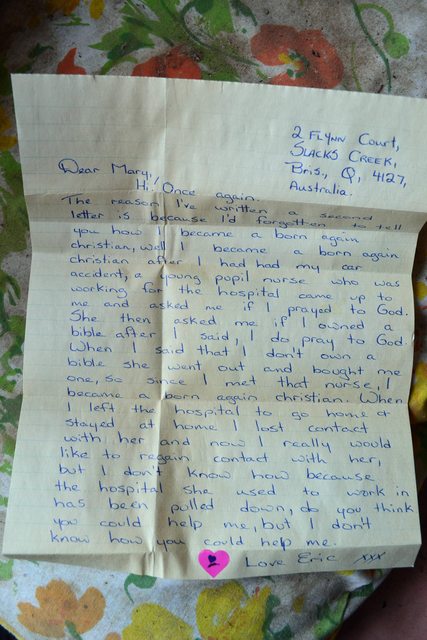 2 Flynn Court,
Slacks Creek,
Bris., Q, 4127,
Australia.
Dear Mary,
Hi! Once again.
The reason I've written a second
letter is because I'd forgotten to tell
you how I became a born again
christian, well I became a born again
christian after I had had my car
accident, a young pupil nurse who was
working for the hospital came up to
me and asked me if I prayed to God.
She then asked me if I owned a
bible after I said, I do pray to God
When I said that I don't own a
bible she went out and bought me
one, so since I met that nurse, I
became a born again christian. When
I left the hospital to go home &
stayed at home I lost contact
with her and now I really would
like to regain contact with her,
but I don't know how because
the hospital she used to work in
has been pulled down, do you think
you could help me, but I don't
know how you could help me.
Love Eric xxx